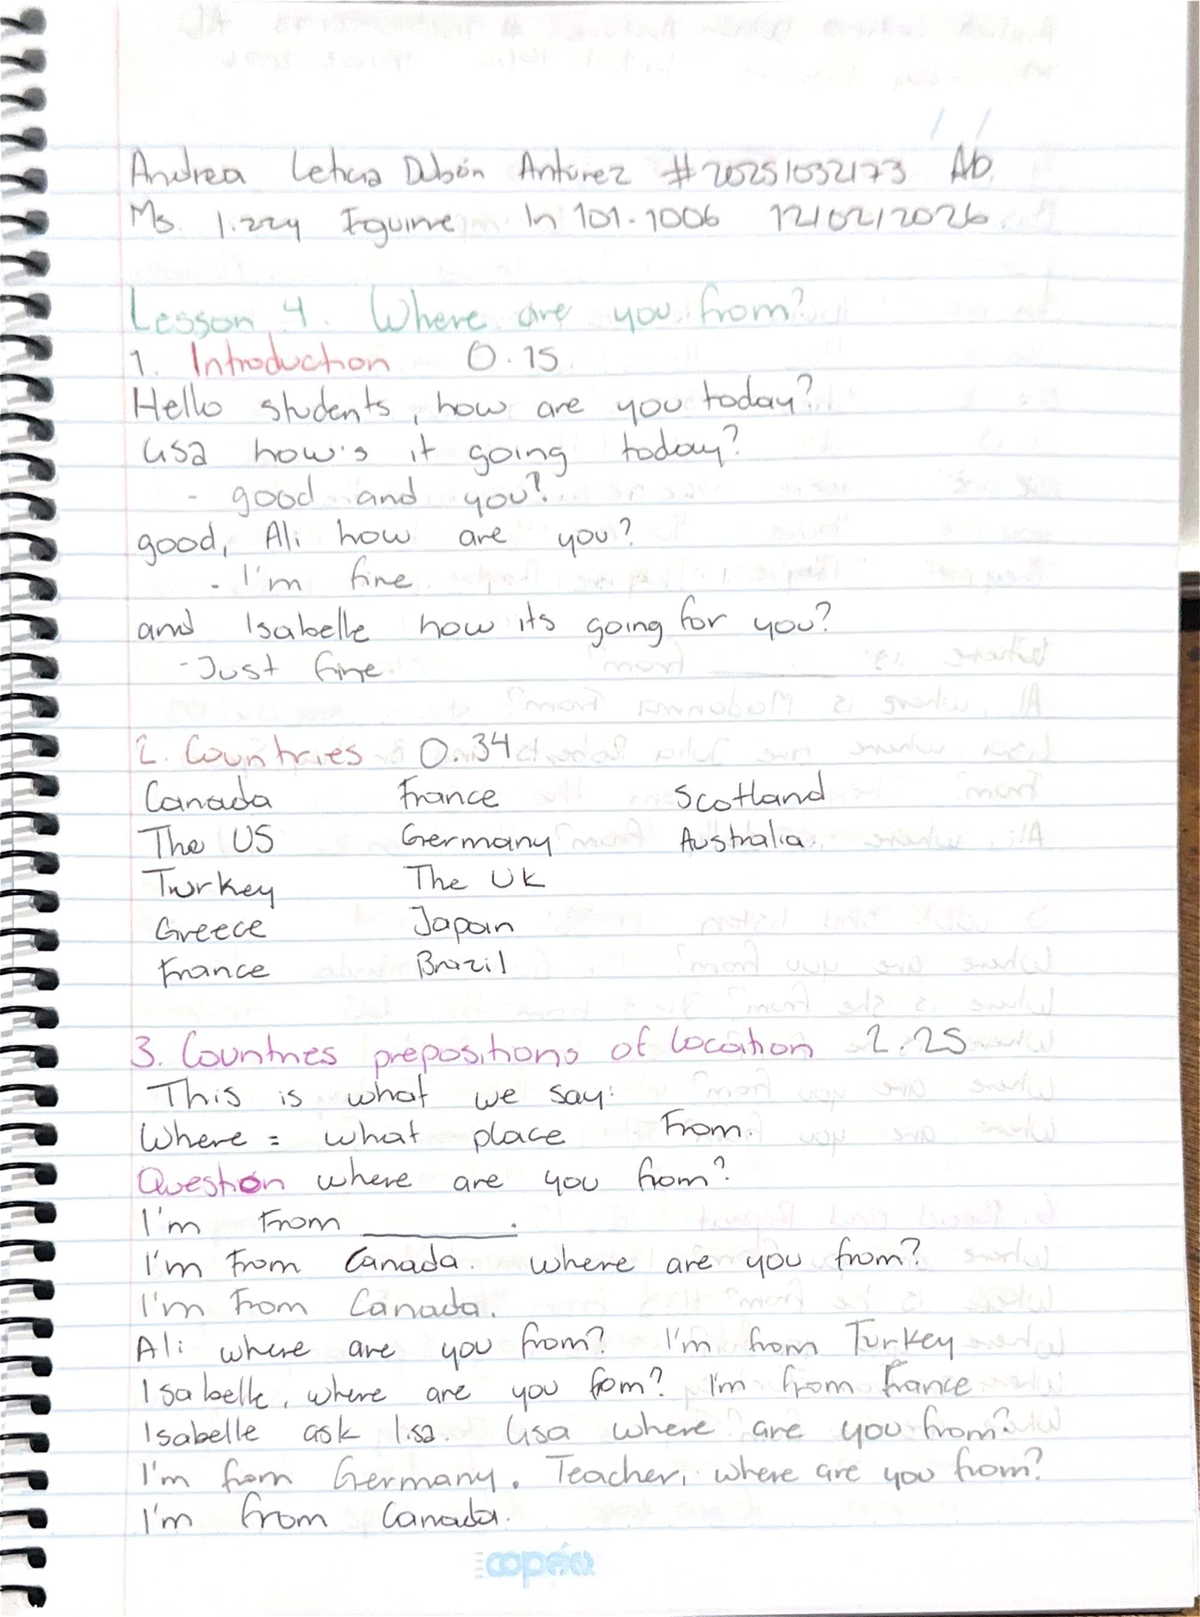 Andrea Leticia Dubón Antúnez #20251032173 Ab.
Ms. Lizzy Iguirre In 101-1006 12/02/2026
Lesson 4. Where are you from?
1. Introduction 0.15
Hello students, how are you today?
Lisa how's it going today?
- good and you?
good, Ali how are you?
- I'm fine.
and Isabelle how its going for you?
- Just fine.
2. Countries 0.34
Canada France Scotland
The US Germany Australia
Turkey The UK
Greece Japan
France Brazil
3. Countries prepositions of location 2.25
This is what we say:
Where = what place From.
Question where are you from?
I'm From ________.
I'm From Canada. Where are you from?
I'm From Canada.
Ali where are you from? I'm from Turkey
Isabelle, where are you fom? I'm from France
Isabelle ask lisa. Lisa where are you from?
I'm from Germany. Teacher, where are you from?
I'm from Canada.
copán